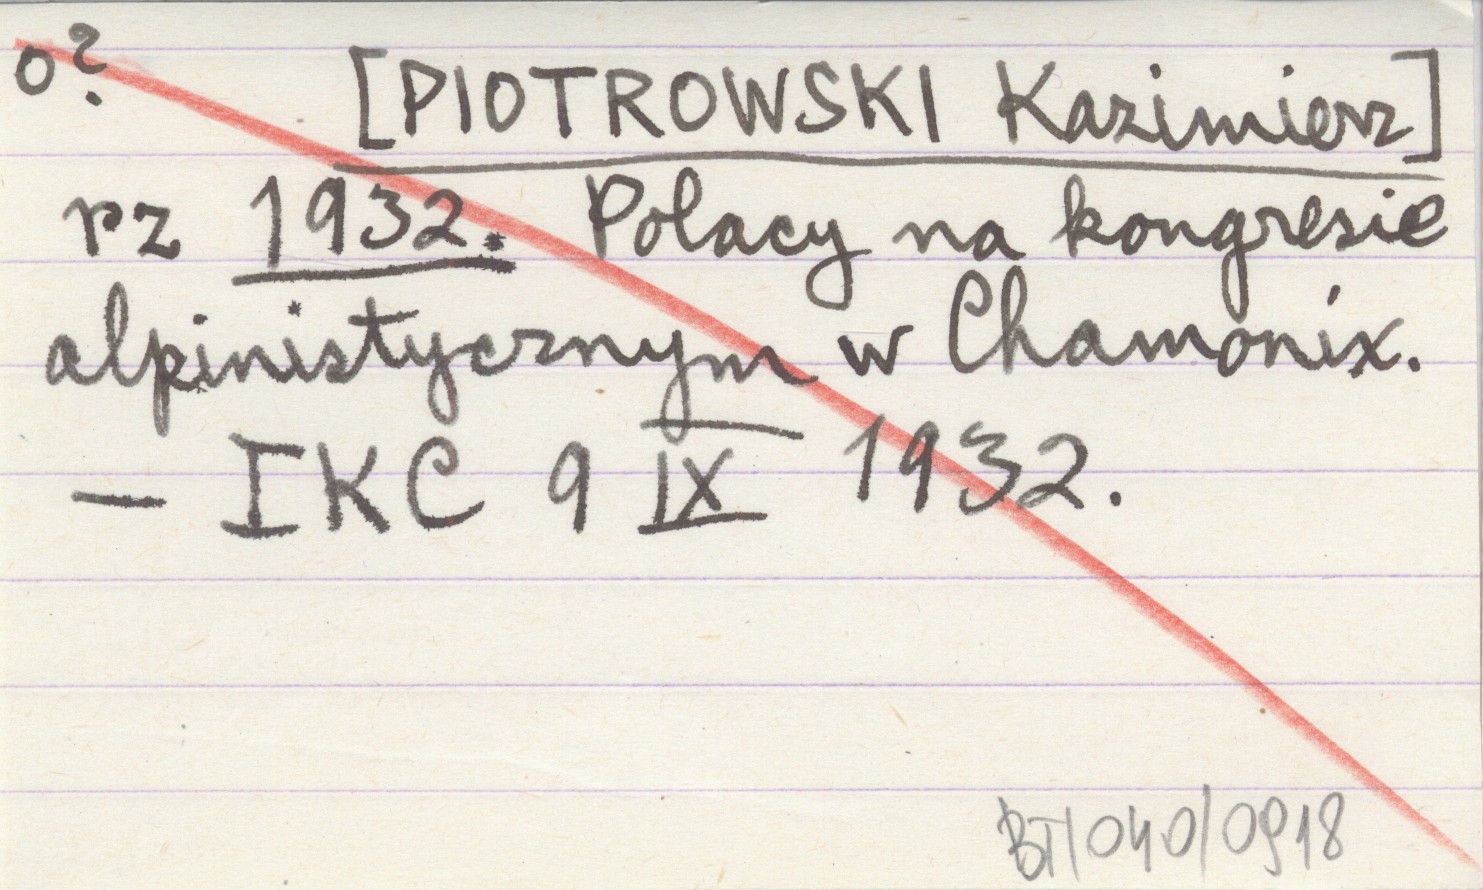 o? [PIOTROWSKI Kazimierz]
rz 1932. Polacy na kongresie
alpinistycznym w Chamonix.
— IKC 9 IX 1932.
BT/040/0918